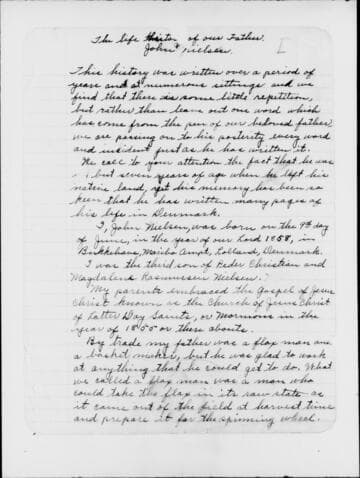 The life history of our Father.
John Nielsen.
This history was written over a period of
years and at numerous sittings and we
find that there is some little repetition,
but rather than leave out one word which
has come from the pen of our beloved father
we are passing on to his posterity every word
and incident just as he has written it.
We call to your attention the fact that he was
but seven years of age when he left his
native land, yet his memory has been so
keen that he has written many pages of
his life in Denmark.
I, John Nielsen, was born on the 9th day
of June, in the year of our Lord 1858, in
Birkkehave, Maribo Ampt, Lolland, Denmark.
I was the third son of Peder Christian and
Magdalena Rasmussen Nielsen.
My parents embraced the Gospel of Jesus
Christ known as the Church of Jesus Christ
of Latter Day Saints, or Mormons in the
year of 1855 or there abouts.
By trade my father was a flax man and
a basket maker, but he was glad to work
at anything that he could get to do. What
we called a flax man was a man who
could take the flax in its raw state as
it came out of the field at harvest time
and prepare it for the spinning wheel.